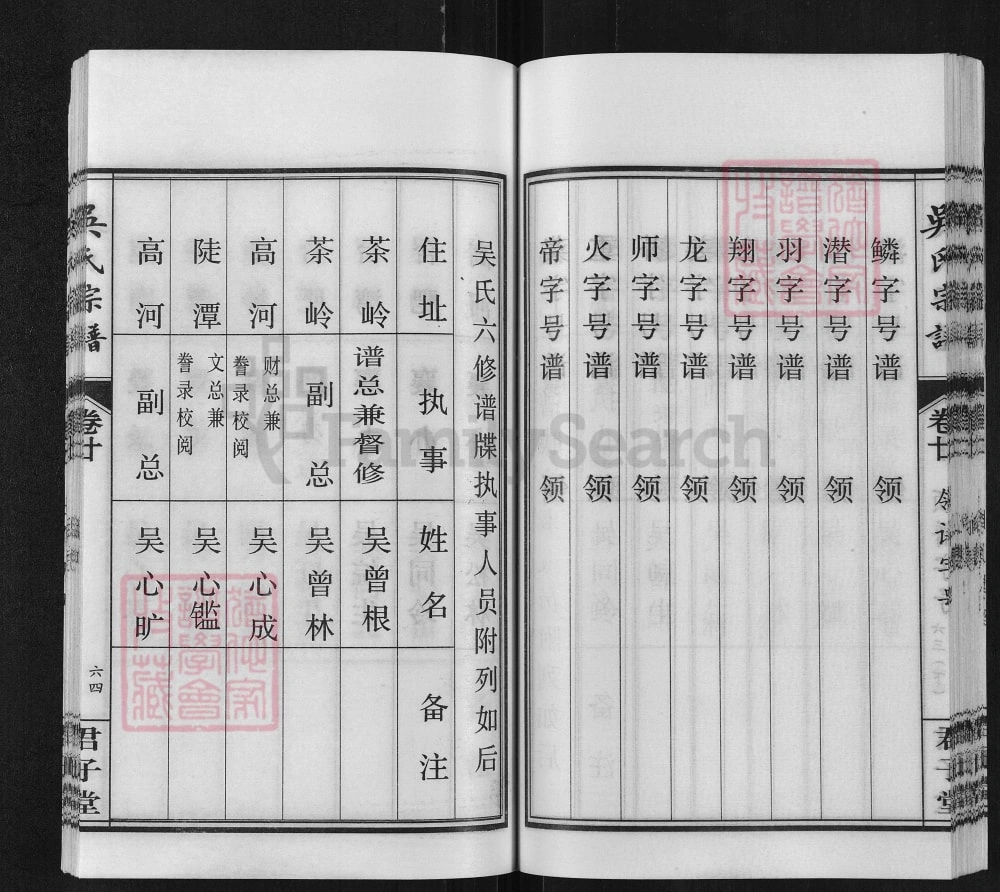 吴氏宗谱
卷廿
领谱字号
君子堂
鳞字号谱 领
潜字号谱 领
羽字号谱 领
翔字号谱 领
龙字号谱 领
师字号谱 领
火字号谱 领
帝字号谱 领
吴氏六修谱牒执事人员附列如后
住址 执事 姓名 备注
茶岭 谱总兼督修 吴曾根
茶岭 副总 吴曾林
高河 财总兼誊录校阅 吴心成
陡潭 文总兼誊录校阅 吴心鑑
高河 副总 吴心旷
吴氏宗谱
卷廿
六四
君子堂
FamilySearch